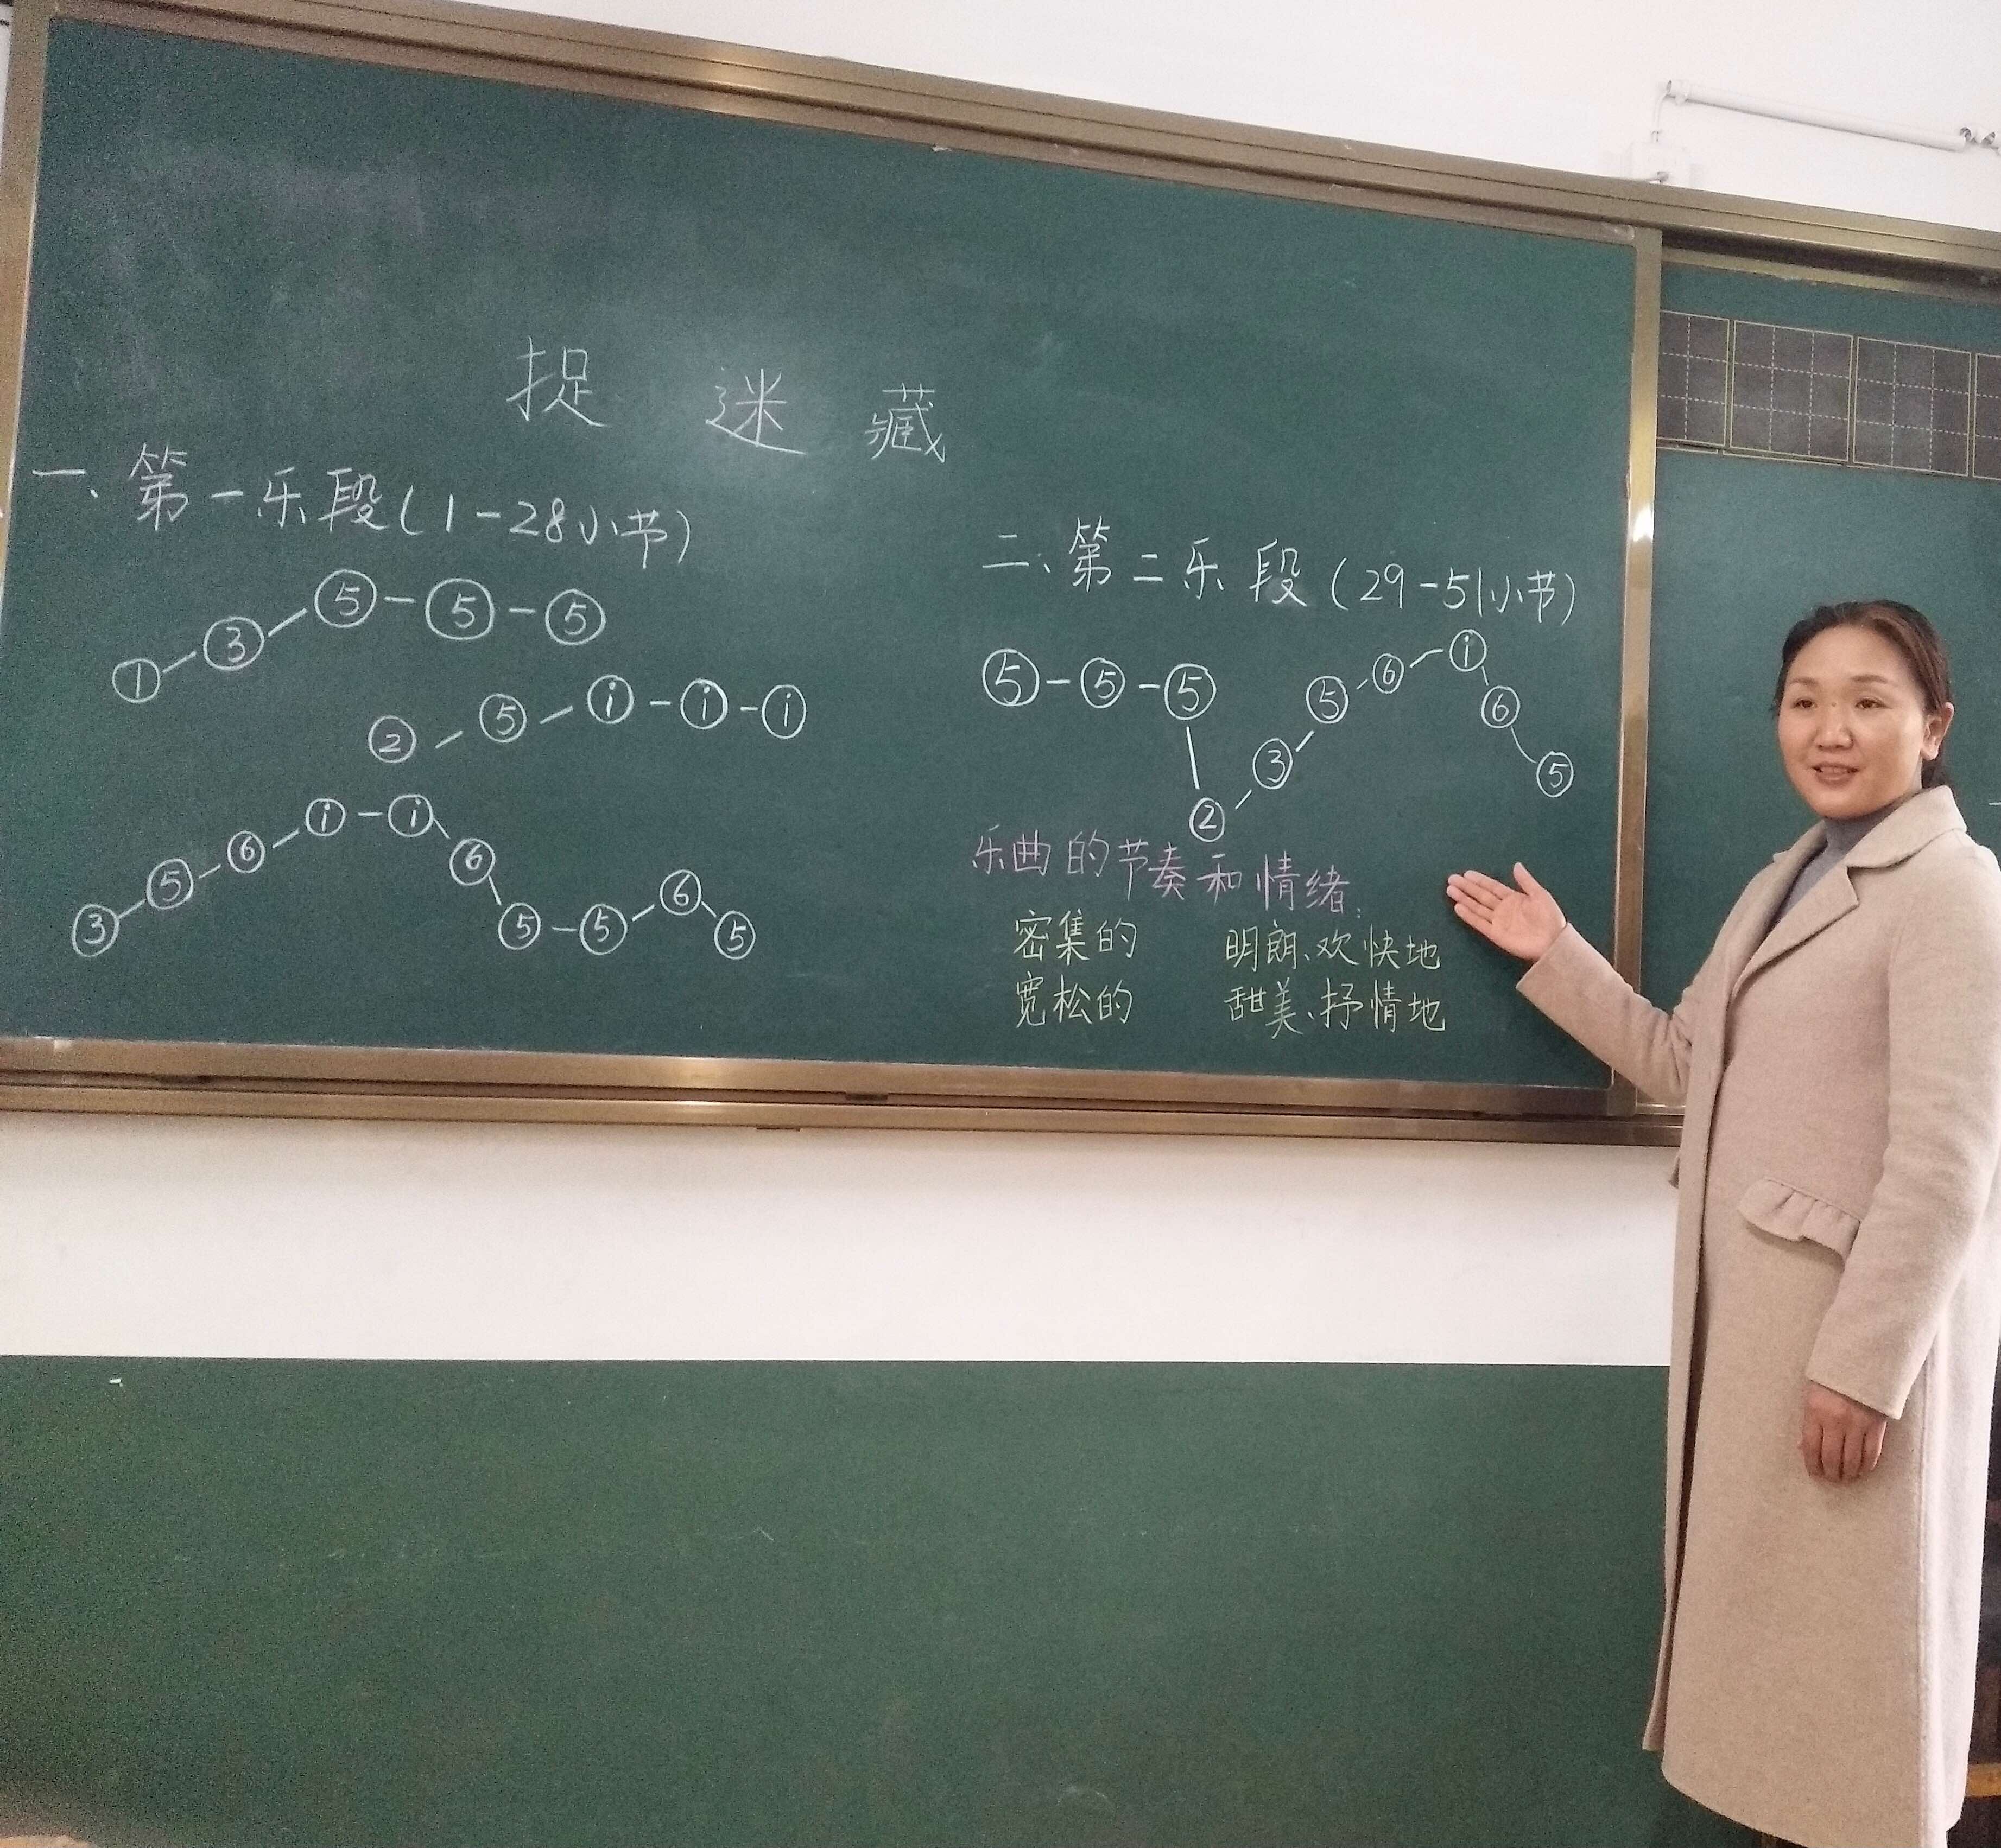 捉迷藏
一、第一乐段(1-28小节)
①-③-⑤-⑤-⑤
②-⑤-i-i-i
③-⑤-⑥-i-i-⑥-⑤-⑤-⑥-⑤
二、第二乐段(29-51小节)
⑤-⑤-⑤-②-③-⑤-⑥-i-⑥-⑤
乐曲的节奏和情绪:
密集的 明朗、欢快地
宽松的 甜美、抒情地